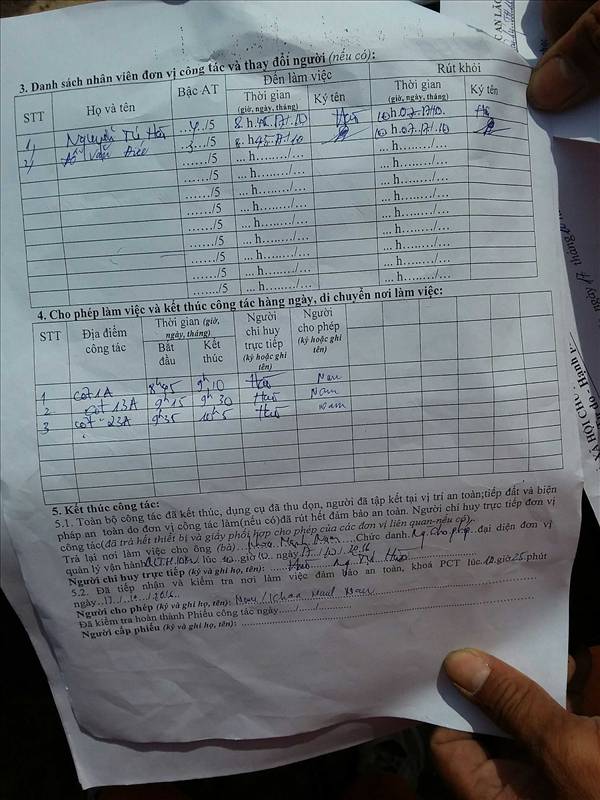 3. Danh sách nhân viên đơn vị công tác và thay đổi người (nếu có):
STT Họ và tên Bậc AT Đến làm việc Rút khỏi
Thời gian (giờ, ngày, tháng) Ký tên Thời gian (giờ, ngày, tháng) Ký tên
1, Nguyễn Tú ..4../5 8 h.45.17/.10
2, văn ..3../5 8. h45.17/10
....../5 ... h......../... ... h......../...
....../5 ... h......../... ... h......../...
....../5 ... h......../... ... h......../...
....../5 ... h......../... ... h......../...
....../5 ... h......../... ... h......../...
....../5 ... h......../... ... h......../...
....../5 ... h......../... ... h......../...
....../5 ... h......../... ... h......../...
4. Cho phép làm việc và kết thúc công tác hàng ngày, di chuyển nơi làm việc:
STT Địa điểm công tác Thời gian (giờ, ngày, tháng) Người chỉ huy trực tiếp (ký hoặc ghi tên) Người cho phép (ký hoặc ghi tên)
Bắt đầu Kết thúc
1 cột 1A 8h45 9h10 Nam
2 cột 13A 9h15 9h30 Nam
3 cột 23A 9h35 10h5 Nam
5. Kết thúc công tác:
5.1. Toàn bộ công tác đã kết thúc, dụng cụ đã thu dọn, người đã tập kết tại vị trí an toàn;tiếp đất và biện
pháp an toàn do đơn vị công tác làm(nếu có)đã rút hết đảm bảo an toàn. Người chỉ huy trực tiếp đơn vị
công tác(đã trả hết thiết bị và giấy phối hợp cho phép của các đơn vị liên quan-nếu có).
Trả lại nơi làm việc cho ông (bà): Chức danh Ng. cho phép đại diện đơn vị
quản lý vận hành lúc 10 giờ 10 ngày 17/10/2016
Người chỉ huy trực tiếp (ký và ghi họ, tên):
5.2. Đã tiếp nhận và kiểm tra nơi làm việc đảm bảo an toàn, khoá PCT lúc 10 giờ 25 phút
ngày 17/10/2016
Người cho phép (ký và ghi họ, tên):
Đã kiểm tra hoàn thành Phiếu công tác ngày....../....../......
Người cấp phiếu (ký và ghi họ, tên):